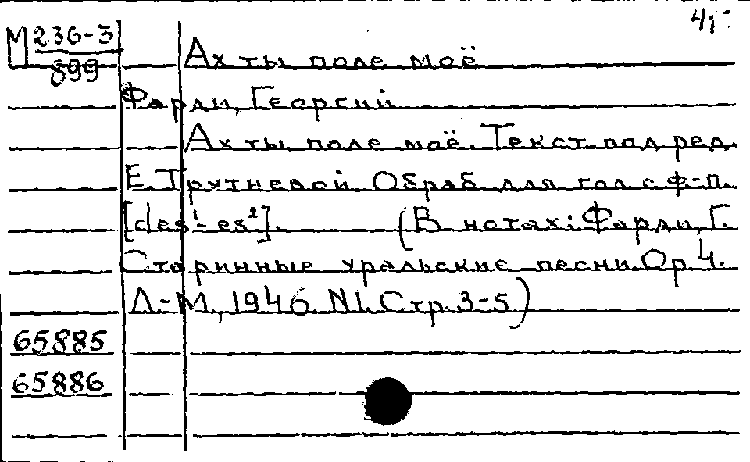 М 236-3
899
Ах ты поле моё
Фарди, Георгий
Ах ты поле моё. Текст под ред.
Е. Трутневой. Обраб. для гол. с ф-п.
[des¹-es²]. (В нотах: Фарди, Г.
Старинные уральские песни. Ор. 4.
Л-М, 1946. N1. Стр. 3-5)
65885
65886